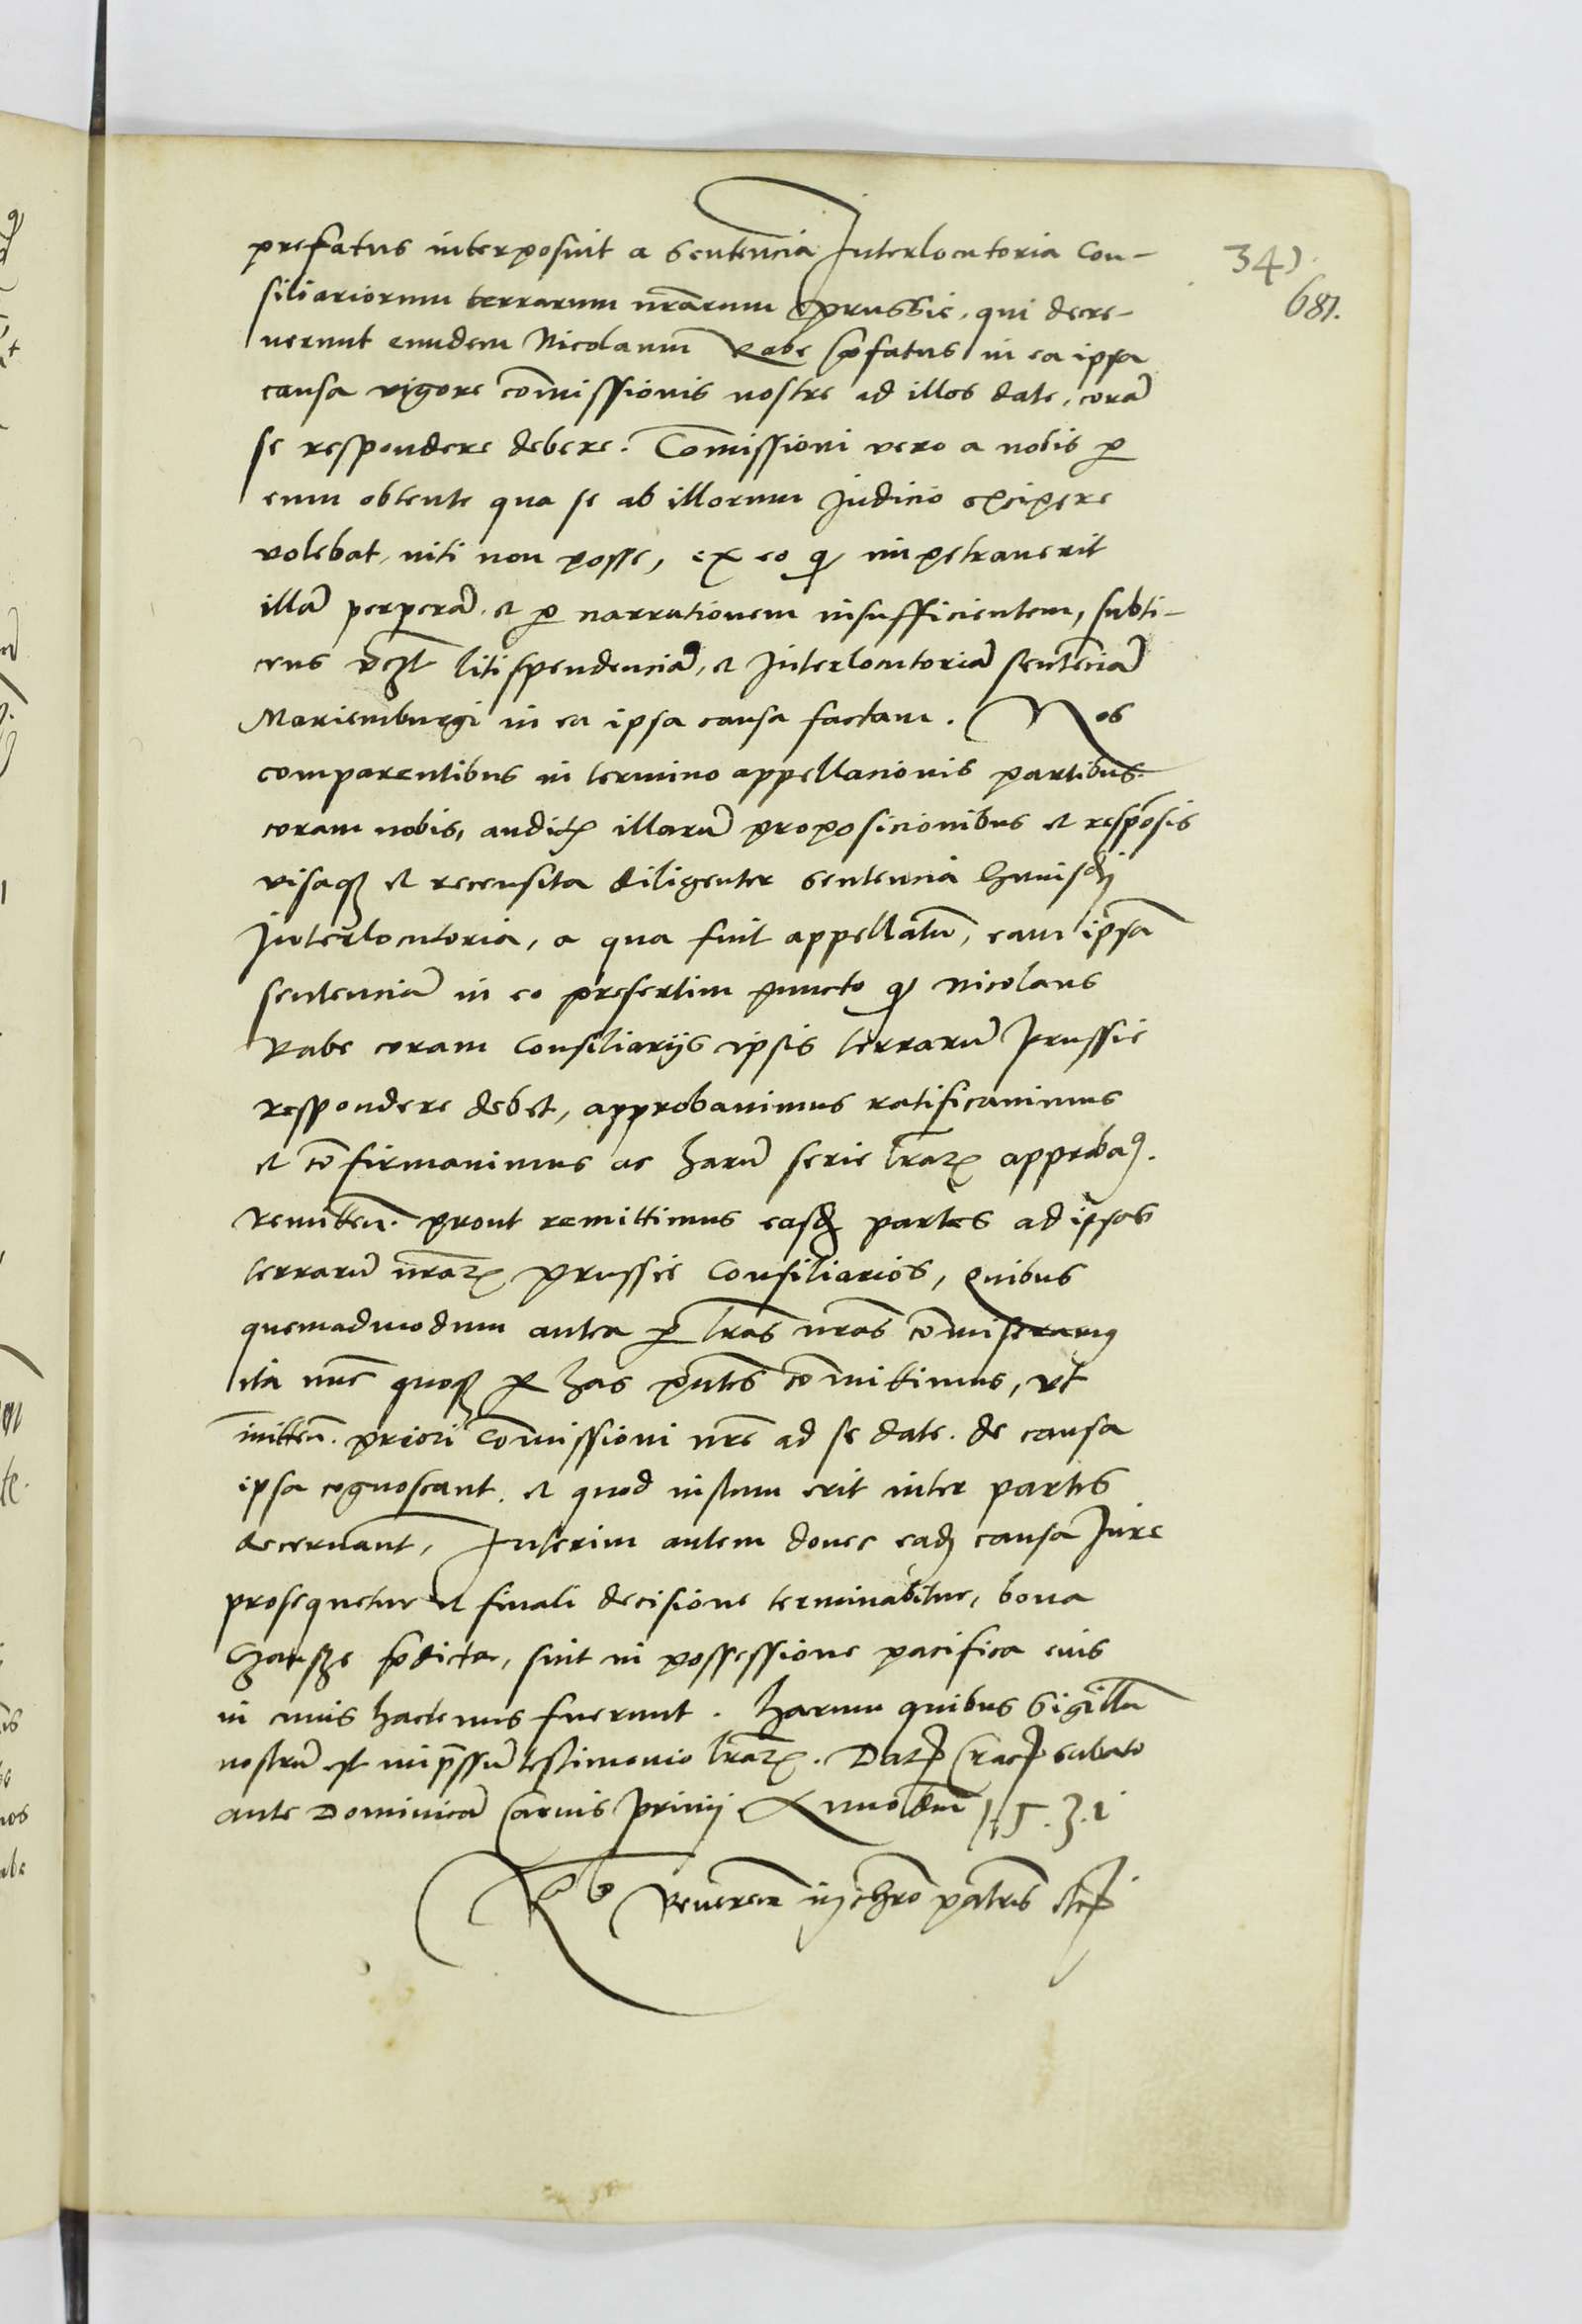 prefatus interposuit a Sententia Interlocutoria Con-
siliariorum terrarum nrarum Prussie, qui decre-
uerunt eundem Nicolaum Rabe pfatus in ea ipsa
causa vigore comissionis nostre ad illos date, cora
se respondere debere. Comissioni vero a nobis p
eum obtente qua se ab illorum Judicio excipere
volebat, niti non posse, ex eo q impetrauerit
illa perpera et p narrationem insufficientem, subti-
cens vczt litispendencia, et Interlocutoria sentencia
Mariemburgi in ea ipsa causa factam. Nos
comparentibus in termino appellacionis partibus
coram nobis, audit illaru proposicionibus et resposis
visaq et recensita diligenter sentencia huiusdj
Interlocutoria, a qua fuit appellatu, eam ipsa
sentencia in eo presertim puncto q Nicolaus
Rabe coram Consiliarijs ipsis terraru Prussie
respondere debet, approbauimus ratificauimus
et cofirmauimus ac haru serie lraz approba.
Remitten. prout remittimus easd partes ad ipsos
terraru nraz Prussie Consiliarios, Quibus
quemadmodum antea p lras nras comiseramus
ita nuc quoq p has pntes comittimus, vt
initten. priori Comissioni nre ad se date. de causa
ipsa cognoscant. et quod iustum erit inter partes
decernant, Interim autem donec ead causa Jure
prosequetur et finali decisione terminabitur, bona
pdicta, sint in possessione pacifica eius
in cuius hactenus fuerunt. Harum quibus Sigillu
nostru est impssu testimonio lraz. Dat Crac sabato
ante Dominica Carnis priuij Anno dni 1531
Reueren in chro patris
34)
687.